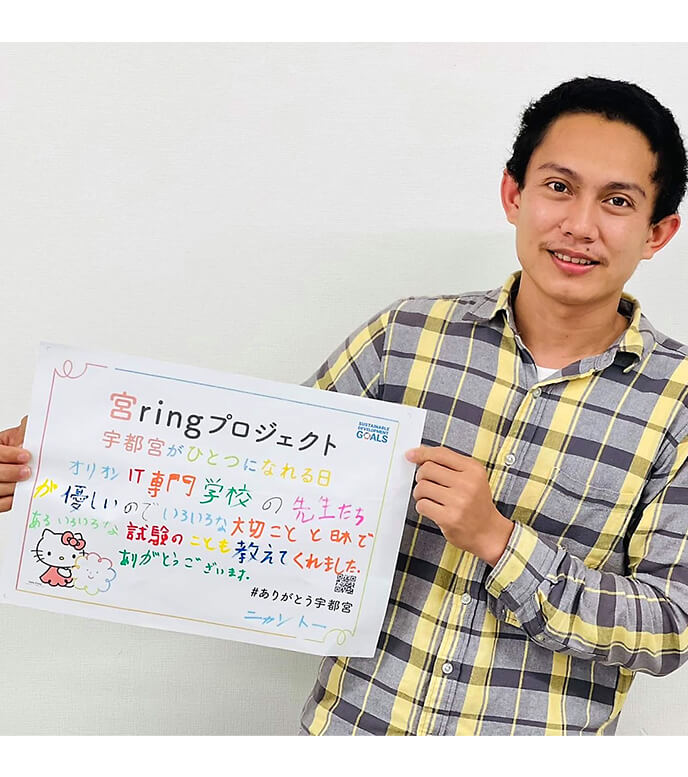 宮ringプロジェクト
SUSTAINABLE
DEVELOPMENT
GOALS
宇都宮がひとつになれる日
オリオンIT専門学校の先生たち
が優しいのでいろいろな大切ことと日本で
あるいろいろな試験のことも教えてくれました.
ありがとうございます.
#ありがとう宇都宮